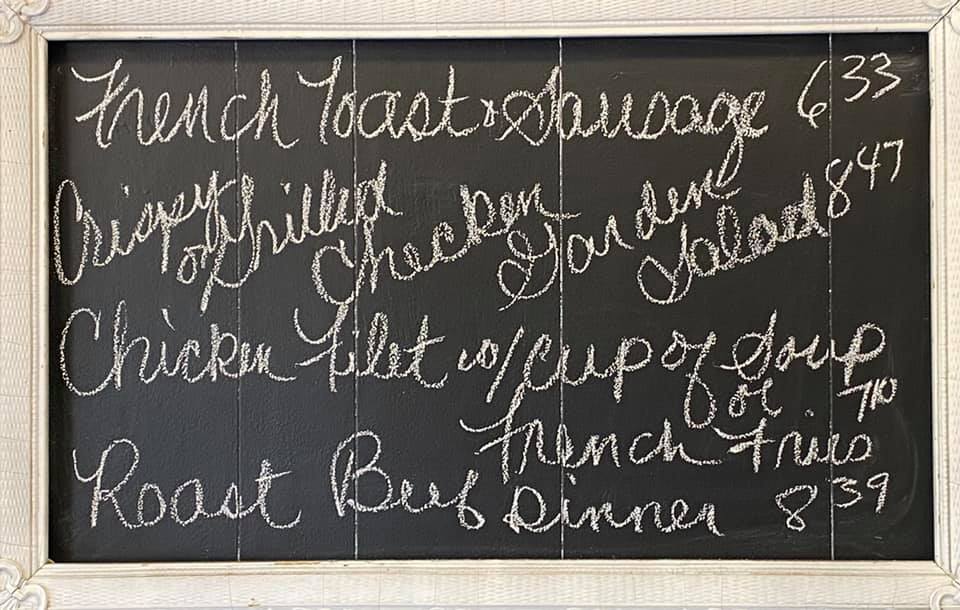 French Toast & Sausage 6 33
Crispy or Grilled Chicken Garden Salad 8 47
Chicken Filet w/cup of Soup
or 7 10
French Fries
Roast Beef Dinner 8 39